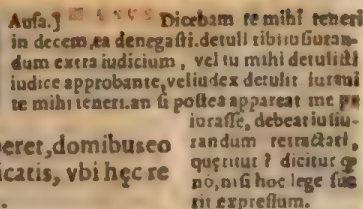 Aufa.] Dicebam te mihi teneri
in decem, ea denegafti. detuli tibi iufiuran-
dum extra iudicium, vel tu mihi detulifti
iudice approbante, vel iudex detulit iuraui
te mihi teneri. an fi poftea appareat me
iuraffe, debeat iufiu-
randum retractari,
quęritur? dicitur
nò, nifi hoc lege fue
rit expreffum.
eret, domibus eo
icatis, vbi hęc re